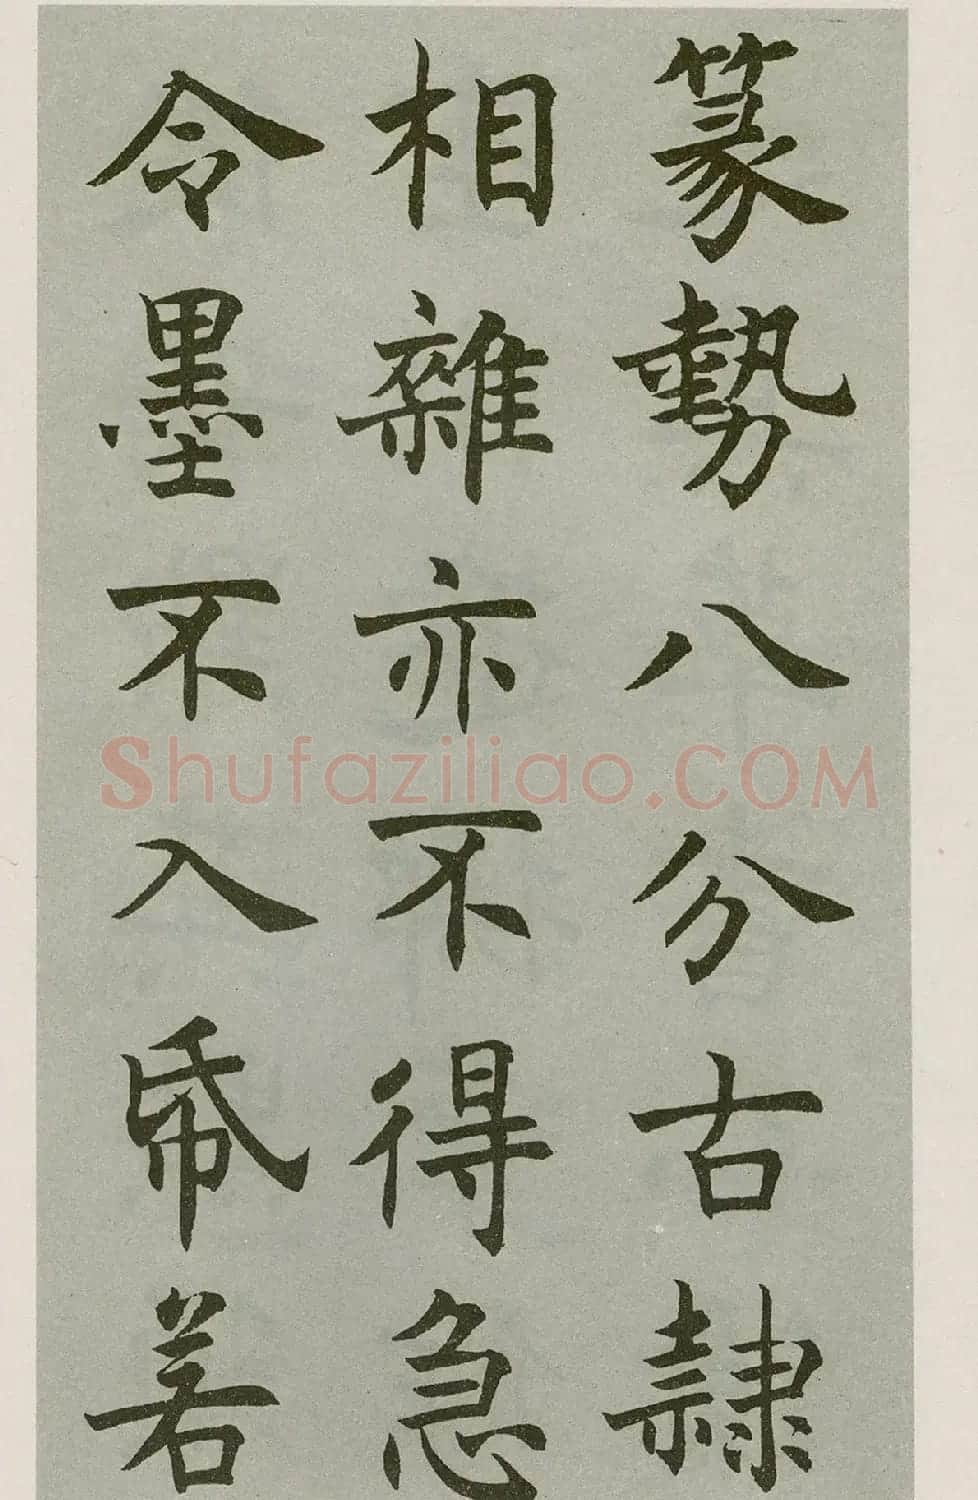 篆勢八分古隸
相雜亦不得急
令墨不入帋若
Shufaziliao.COM